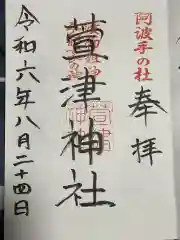 阿波手の杜
奉拝
萱津神社
令和六年八月二十四日